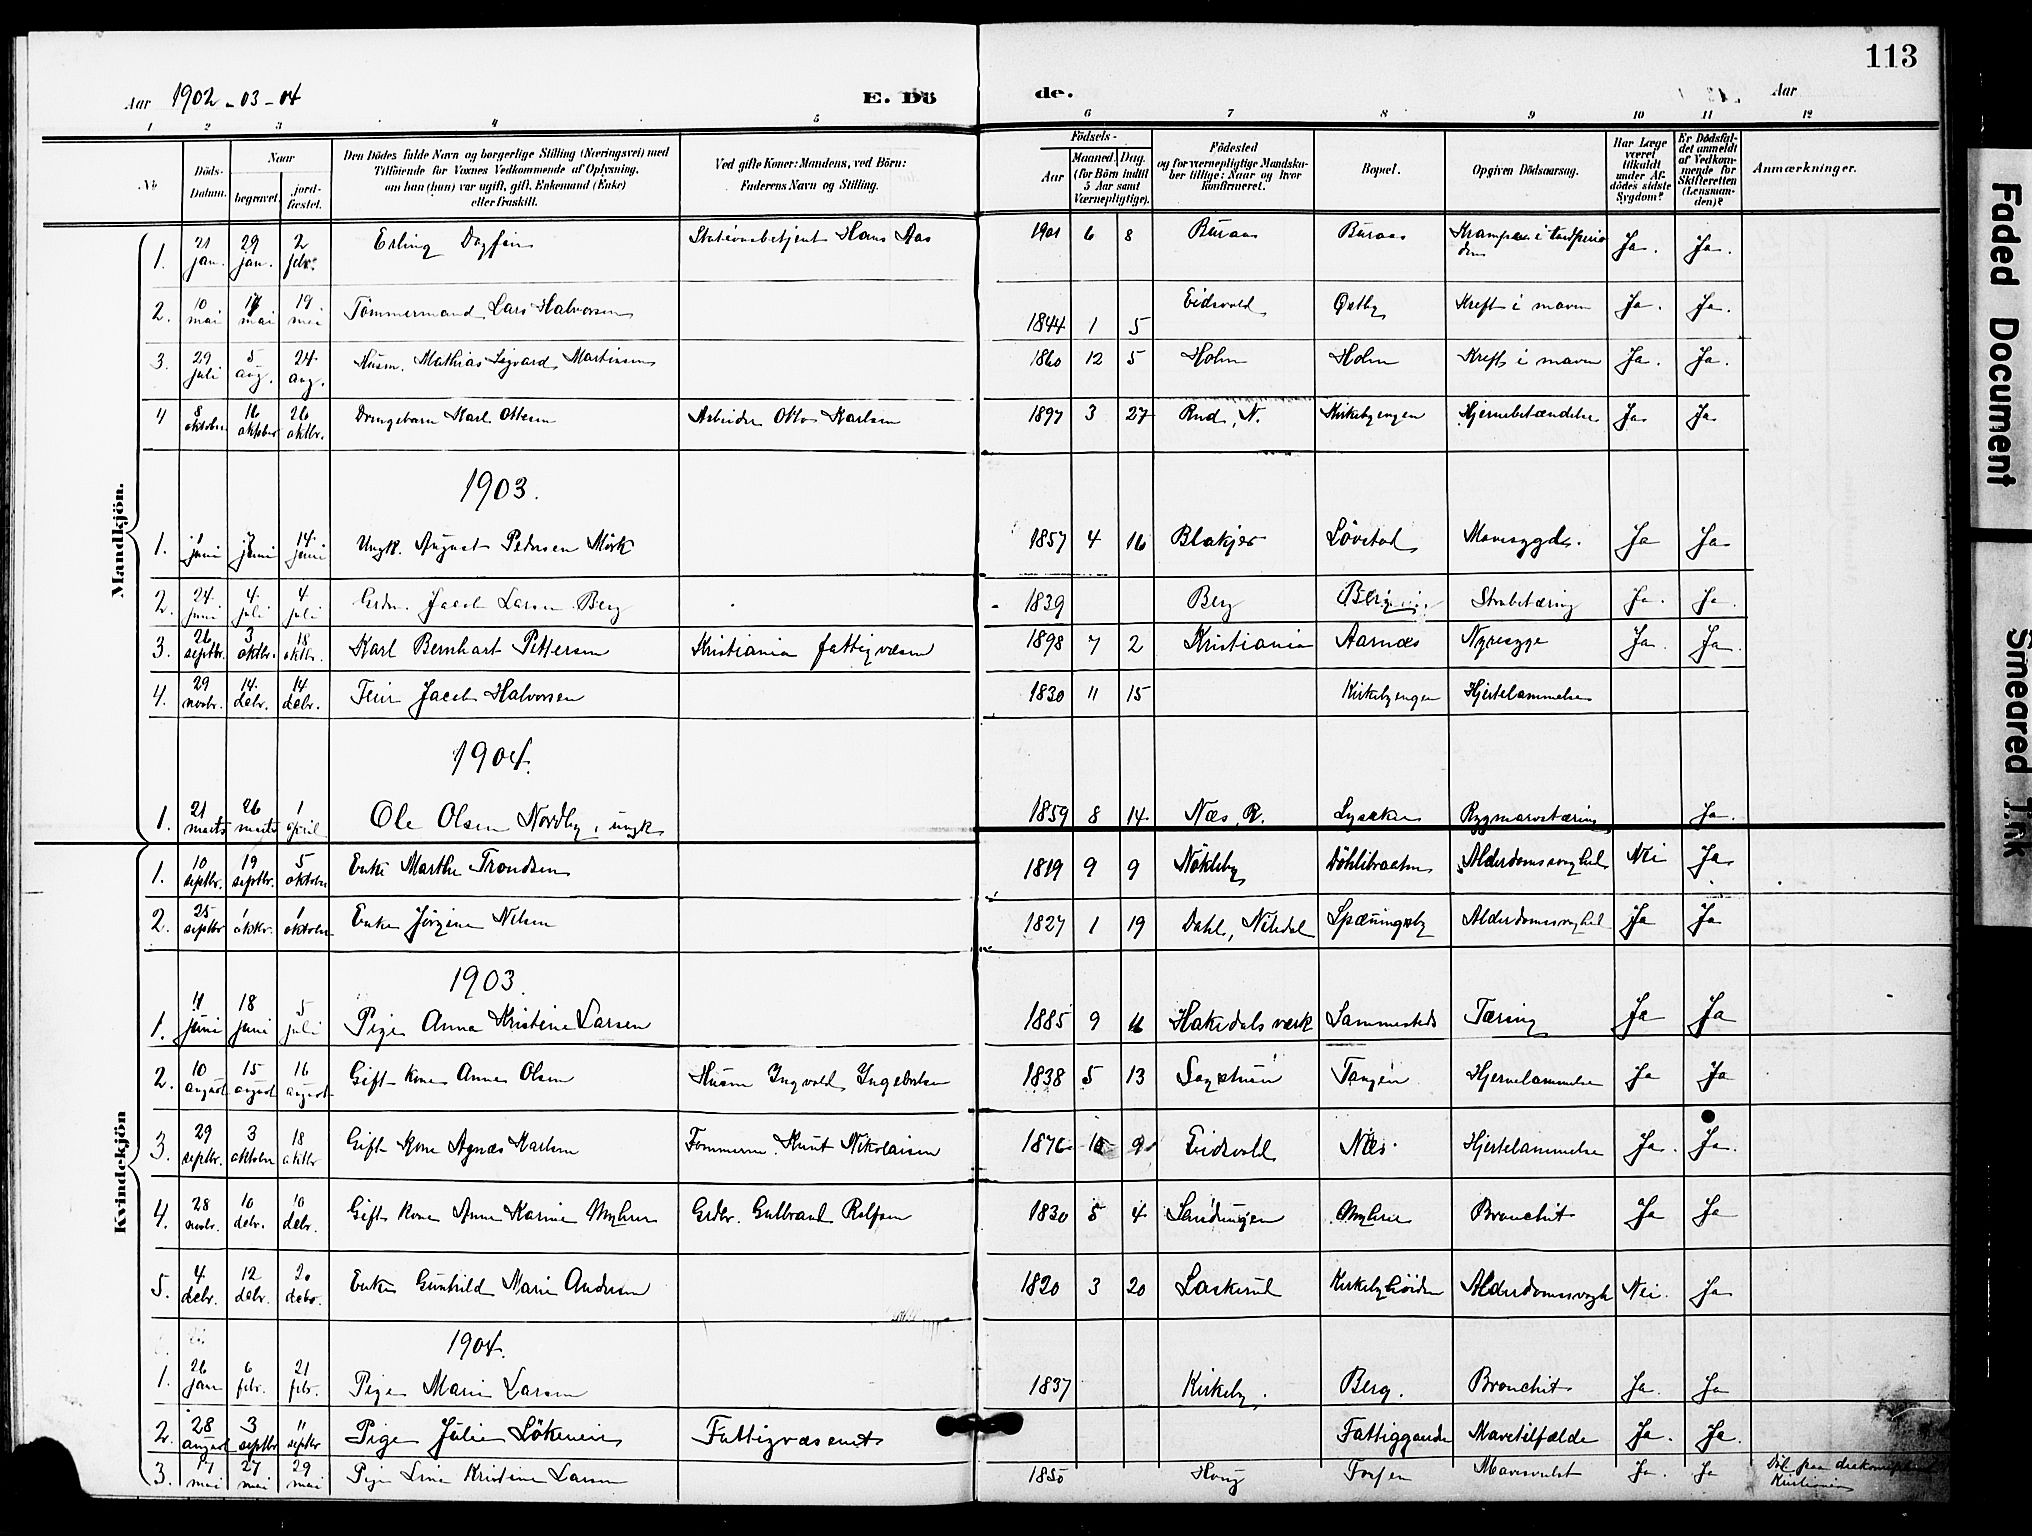 113
Aar 1902-03-04
E. Dö
de.
Aar
1 2 3 4 5 6 7 8 9 10 11 12
No
Döds-Datum.
Naar begravet. jordfæstet.
Den Dödes fulde Navn og borgerlige Stilling (Næringsvei) med Tilföiende for Voxnes Vedkommende af Oplysning, om han (hun) var ugift, gift, Enkemand (Enke) eller fraskilt.
Ved gifte Koner: Mandens, ved Börn: Faderens Navn og Stilling.
Födsels- Aar Maaned. Dag. (for Börn indtil 5 Aar samt Værnepligtige).
Födested og for værnepligtige Mandskaber tillige: Naar og hvor konfirmeret.
Bopæl.
Opgiven Dödsaarsag.
Har Læge været tilkaldt under Afdödes sidste Sygdom?
Er Dödsfaldet anmeldt af Vedkommende for Skifteretten (Lensmanden)?
Anmærkninger.
Mandkjön.
1. 21 jan. 29 jan. 2 febr. Erling Dagfin Stationsbetjent Hans Aas 1901 6 8 Buraas Buraas Krampe i tandperioden Ja. Ja.
2. 10 mai 17 mai 19 mai Tømmermand Lars Halvorsen 1844 1 5 Eidsvold Østby Kreft i maven Ja. Ja.
3. 29 juli 5 aug. 24 aug. Husm. Mathias Sigvard Martinsen 1860 12 5 Holm Holm Kreft i maven Ja. Ja.
4 8 oktober 16 oktober 26 oktbr. Drengebarn Karl Ottesen Arbeider Otto Karlsen 1897 3 27 Rud, N. Kirkebyengen Hjernebetændelse Ja Ja
1903.
1. 1 juni 7 juni 14 juni Ungk. August Pedersen Mørk 1857 4 16 Blakjer Løvstad Mavesygd. Ja Ja
2. 24 juni 4 juli 4 juli Grdm. Jacob Larsen Berg 1839 Berg Berg Strubetæring Ja. Ja.
3. 26 septbr. 3 oktbr. 18 oktbr. Karl Bernhart Pettersen Kristiania fattigvæsen 1898 7 2 Kristiania Aarnæs Nyresyge Ja. Ja.
4. 29 novbr. 14 debr. 14 debr. Jacob Halvorsen 1830 11 15 Kirkebyengen Hjertelammelse
1904.
1. 21 marts 26 marts 1 april Ole Olsen Nordby, ungk. 1859 8 14 Næs, R. Lysaker Rygmarvstæring Ja.
Kvindekjön
1. 10 septbr. 19 septbr. 5 oktober Enke Marthe Trondsen 1819 9 9 Nökleby Döhlibraaten Alderdomssvaghed Nei Ja
2. 25 septbr 1 oktbr. 1 oktober Enke Jørgine Nilsen 1827 1 19 Dahl, Nitedal Spæningsby Alderdomssvaghed Ja Ja
1903.
1. 11 juni 18 juni 5 juli Pige Anna Kristine Larsen 1885 9 11 Hakedals værk Sammesteds Tæring Ja Ja
2. 10 august 15 august 16 august Gift kone Anne Olsen Husm Ingvald Ingebretsen 1838 5 13 Sagstuen Tangen Hjernelammelse Ja Ja
3. 29 septbr. 3 oktober 18 oktbr Gift kone Agnæs Karlsen Tømmerm. Knut Nikolaisen 1876 10 9 Eidsvold Næs Hjertelammelse Ja. Ja.
4. 28 novbr. 10 debr. 10 debr. Gift kone Anne Karine Myhrer Grdbr. Gulbrand Rolfsen 1830 5 4 Sandungen Myhrer Bronchit Ja Ja
5. 4 debr. 12 debr. 20 debr. Enke Gunhild Marie Andersen 1820 3 20 Laskerud Kirkebyhöiden Alderdomssvagh Nei. Ja
1904.
1. 26 jan 6 febr. 21 febr. Pige Marie Larsen 1837 Kirkeby. Berg. Bronchit Ja. Ja
2. 28 august 3 septbr 11 septbr Pige Julie Lökeneie Fattigvæsenet Fattiggaarden Mavetilfælde Ja. Ja.
3. 17 mai 27 mai 29 mai Pige Lina Kristine Larsen 1850 Haug Mavesvulst Ja. Ja Död paa Kristiania
Faded Document
Smeared Ink